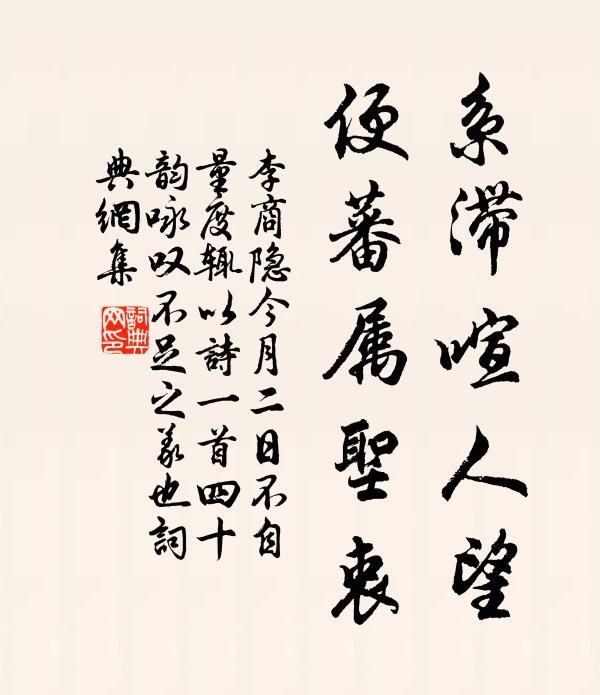 系滞喧人望
便蕃属聖衷
李商隐今月二日不自
量度辄以詩一首四十
韵咏叹不足之義也詞
典網集
詞典网印